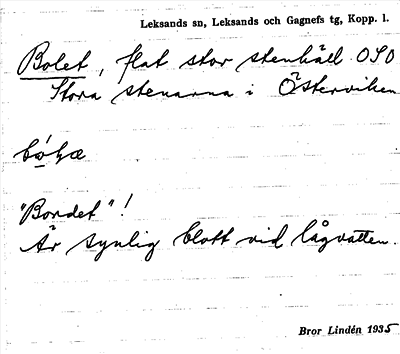 Leksands sn, Leksands och Gagnefs tg, Kopp. l.
Bolet, flat stor stenhäll OSO
Stora stenarna i Österviken
"Bordet"!
Är synlig blott vid lågvatten.
Bror Lindén 1935